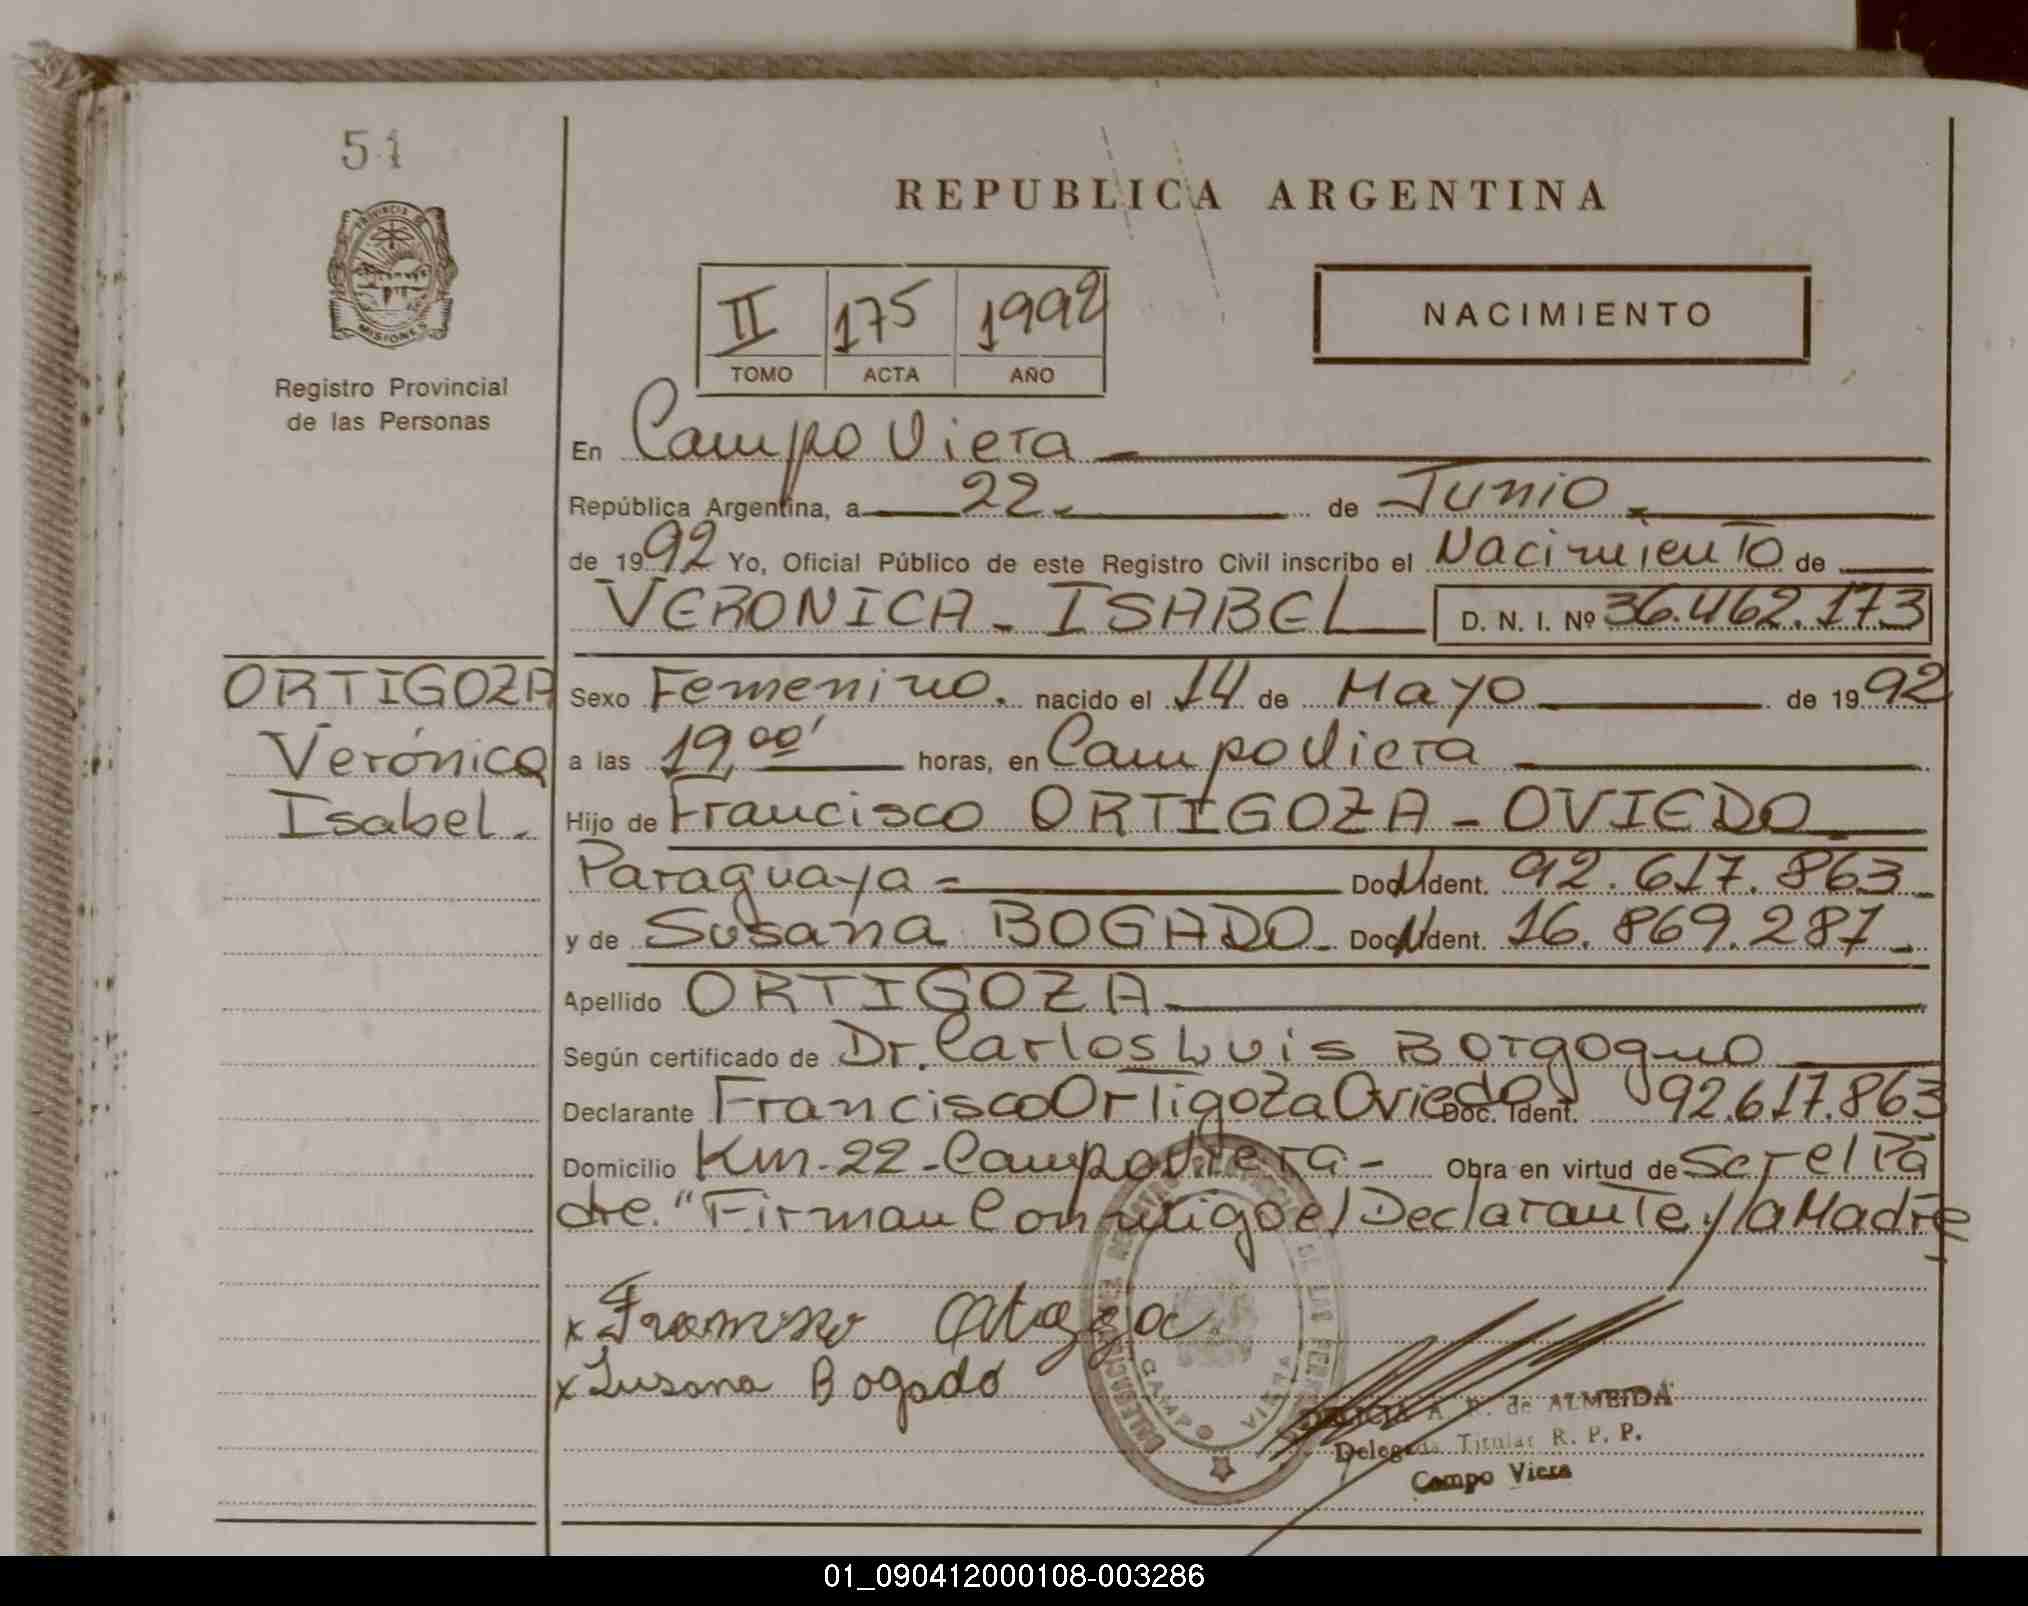 51
PROVINCIA DE
MISIONES
Registro Provincial
de las Personas
REPUBLICA ARGENTINA
II 175 1992
TOMO ACTA AÑO
NACIMIENTO
En Campo Viera
República Argentina, a 22 de Junio
de 1992 Yo, Oficial Público de este Registro Civil inscribo el Nacimiento de
VERONICA - ISABEL D. N. I. Nº 36.462.173
ORTIGOZA
Verónica
Isabel.
Sexo Femenino. nacido el 14 de Mayo de 1992
a las 19,00' horas, en Campo Viera
Hijo de Francisco ORTIGOZA - OVIEDO
Paraguaya - Doc. Ident. 92.617.863
y de Susana BOGADO Doc. Ident. 16.869.287
Apellido ORTIGOZA
Según certificado de Dr. Carlos Luis Borgogno
Declarante Francisco Ortigoza Oviedo Doc. Ident. 92.617.863
Domicilio Km-22-Campo Viera- Obra en virtud de Ser el Pa
dre. "Firman Conmigo el Declarante y la Madre
x Ortigoza
x Susana Bogado
CAMPO VIERA
A. R. de ALMEIDA
Delegada Titular R. P. P.
Campo Viera
01_090412000108-003286